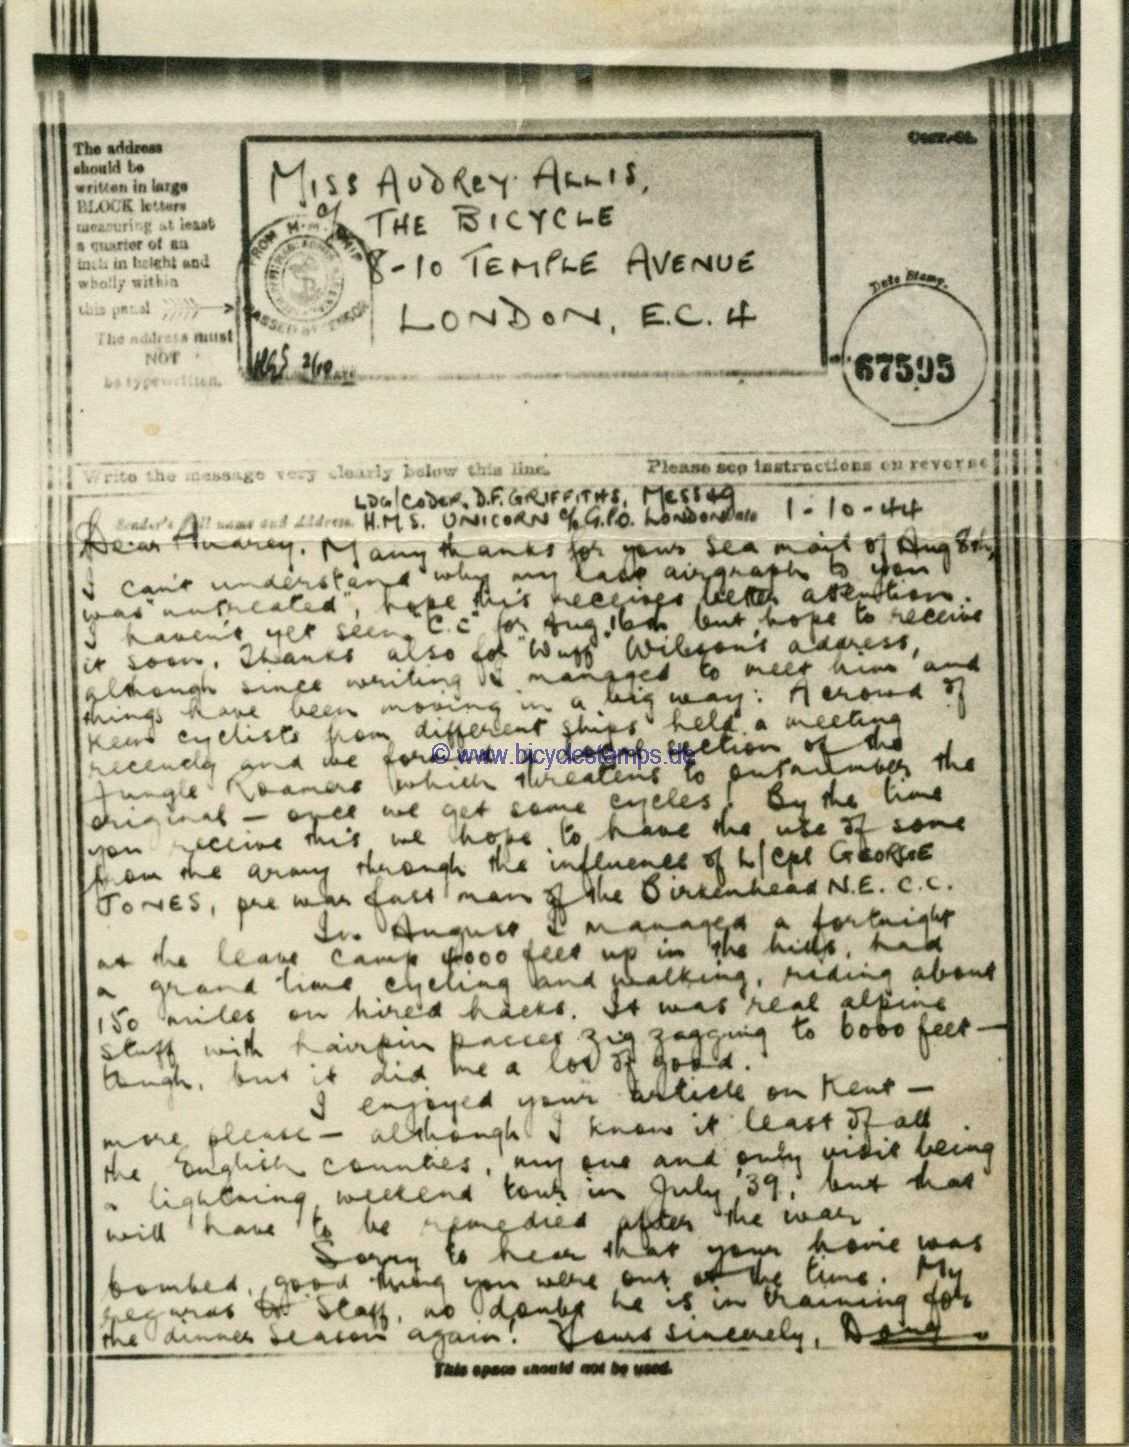 The address
should be
written in large
BLOCK letters
measuring at least
a quarter of an
inch in height and
wholly within
this panel
The address must
NOT
be typewritten.
MISS AUDREY ALLIS,
c/o
THE BICYCLE
8-10 TEMPLE AVENUE
LONDON, E.C. 4
FROM H.M. SHIP
PASSED BY CENSOR
2/10
Date Stamp.
67595
Write the message very clearly below this line.
Please see instructions on reverse
Sender's full name and Address
LDG/CODER. D.F. GRIFFITHS, MESS 49
H.M.S. UNICORN c/o G.P.O. LONDON
1-10-44
Dear Audrey. Many thanks for your sea mail of Aug 8th,
I can't understand why my last airgraph to you
was "untreated", hope this receives better attention.
I haven't yet seen "C.C" for Aug. 16th but hope to receive
it soon. Thanks also for "Wuff" Wilson's address,
although since writing I managed to meet him and
things have been moving in a big way: A crowd of
keen cyclists from different ships held a meeting
recently and we formed a local section of the
Jungle Roamers which threatens to outnumber the
original - once we get some cycles! By the time
you receive this we hope to have the use of some
from the army through the influence of L/Cpl GEORGE
JONES, pre war fast man of the Birkenhead N.E. C.C.
In August I managed a fortnight
at the leave camp 4000 feet up in the hills, had
a grand time cycling and walking, riding about
150 miles on hired hacks. It was real alpine
stuff with hairpin passes zig zagging to 6000 feet -
tough, but it did me a lot of good.
I enjoyed your article on Kent -
more please - although I know it least of all
the English counties, my one and only visit being
a lightning weekend tour in July '39, but that
will have to be remedied after the war.
Sorry to hear that your home was
bombed, good thing you were out at the time. My
regards to Staff, no doubt he is in training for
the dinner season again! Yours sincerely, Doug.
This space should not be used.
© www.bicyclestamps.de